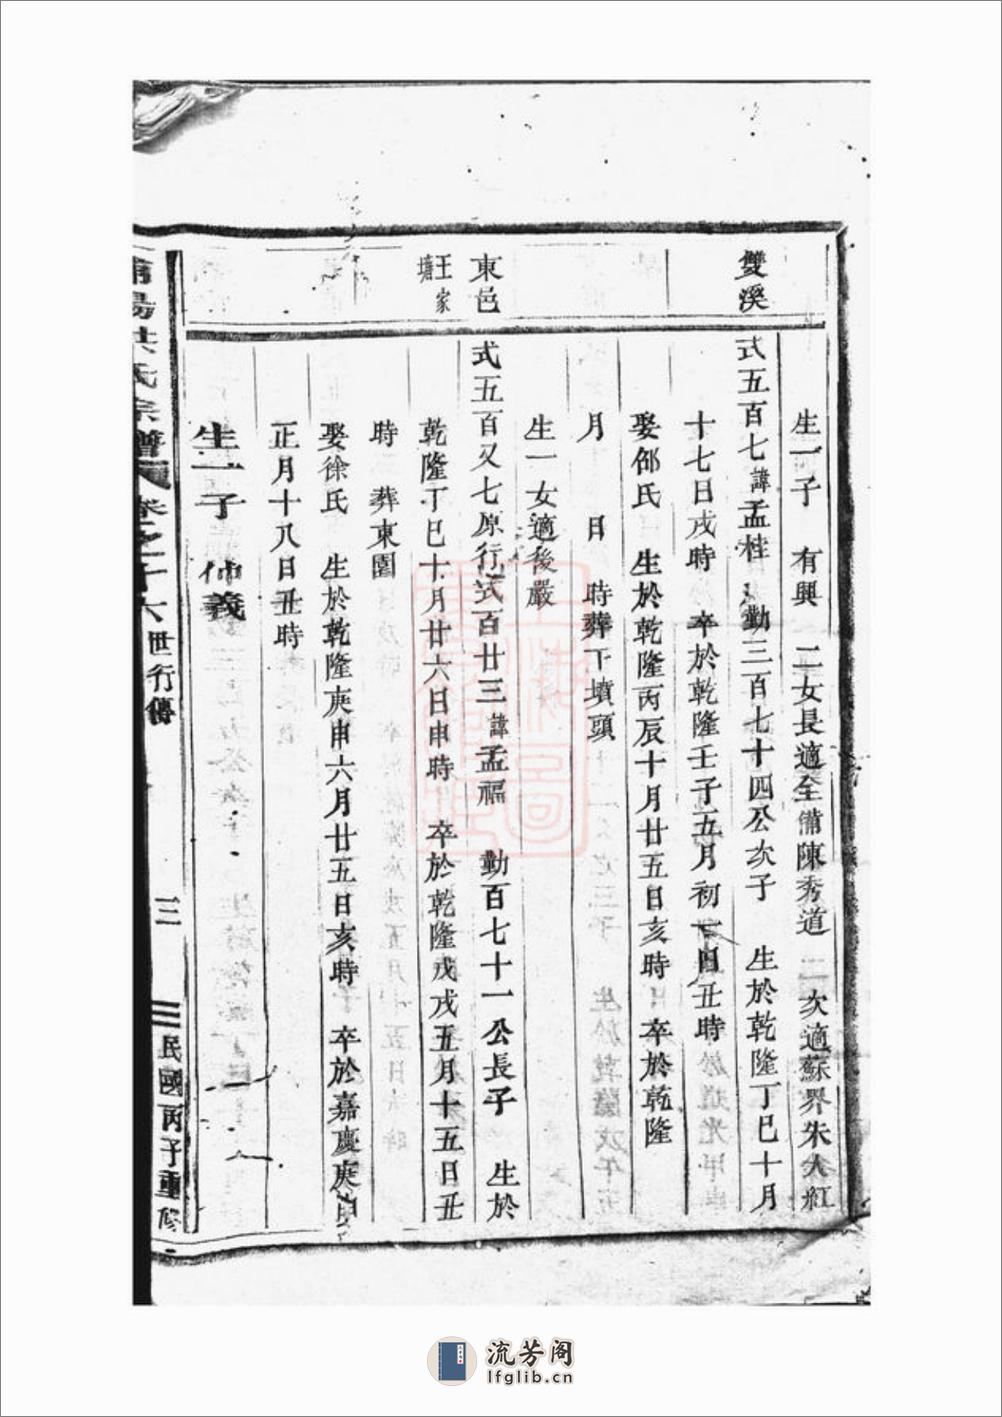 雙溪
生一子 有興 二女長適全備陳秀道 二次適蘇界朱大紅
式五百七諱孟桂 勤三百七十四公次子 生於乾隆丁巳十月
十七日戌時 卒於乾隆壬子五月初一日丑時
娶邵氏 生於乾隆丙辰十月廿五日亥時 卒於乾隆
月 日 時葬下墳頭
生一女適後嚴
東邑
王家塘
式五百又七原行式百廿三諱孟福 勤百七十一公長子 生於
乾隆丁巳十月廿六日申時 卒於乾隆戊戌五月十五日丑
時 葬東園
娶徐氏 生於乾隆庚申六月廿五日亥時 卒於嘉慶庚
正月十八日丑時
生一子 仲義
陽洪氏宗譜 卷之十六 世行傳 三 民國丙子重修
流芳阁
lfglib.cn